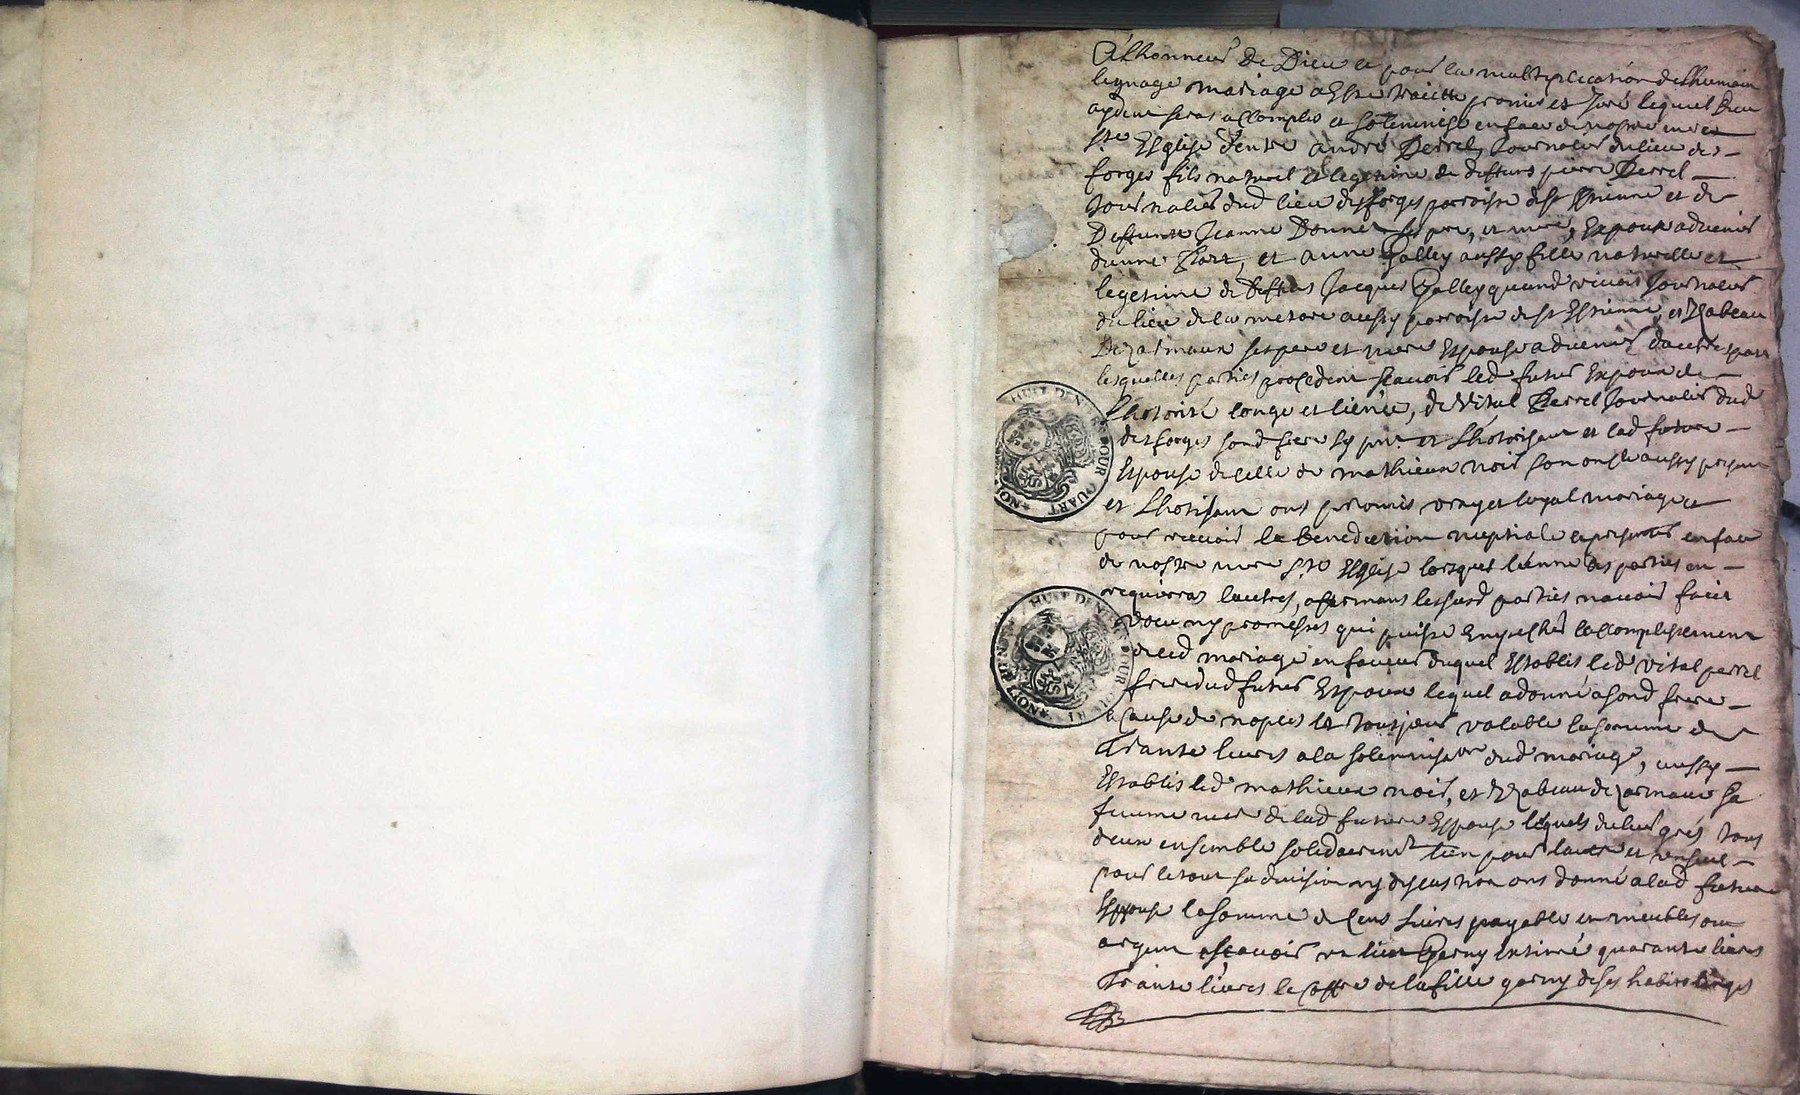 A lhonneur de Dieu et pour la multiplication de lhumain
lignage mariage a esté traicté promis et juré lequel Dieu
aydant seras accomplis et solemnisé en face de nostre mere
Ste Esglise dentre André Perrel, Journalier du lieu des
forges fils naturel et legitime de deffunt pierre Perrel
Journalier dud lieu des forges parroisse de st Estienne et de
Deffunte Jeanne Bonnet ses pere, et mere, Espoux advenir
dunne Part, et anne Galley aussy fille naturelle et
legitime de deffunt Jacques Galley quand vivoit Journalier
du lieu de la metare aussy parroisse de st Estienne, et Izabeau
Dezarmaux ses pere et mere Espouse advenir dautre part
lesquelles parties procedant scavoir led futur Espoux de
Lhotorité longe et licence, de Vital Perrel Journalier dud
des forges sond frere cy pnt et Lhotorisant et lad future
Espouse de celle de mathieu noir son oncle aussy present
et Lhotisant ont promis vray et loyal mariage et
pour recevoir la benediction nuptialle en face
de nostre mere Ste Esglise lorsque lunne des parties en
requierras lautres, affirmans lesusd parties navoir faict
voeu ny promesses qui puisse Empescher laccomplissement
dud mariage en faveur duquel Establis led vital perrel
frere dud futur Espoux lequel a donné a sond frere
a cause de nopces et tousjour valable la somme de
Trante livres a la solemnisaon dud mariage, aussy
Establis led mathieu noir, et Izabeau dezarmaux sa
femme mere de lad future Espouse lequels de leur grés tous
deux ensemble solidairemt lun pour lautre et un seul
pour le tout sa division ny discustion ont donné a lad future
Espouse la somme de Cent livres payable en meubles ou
argent ascavoir un lict garny Estimé quarante livres
Trante livres le coffre de la fille garny de ses habits linges
HUIT DEN POUR QUART
LYON
HUIT DEN POUR QUART